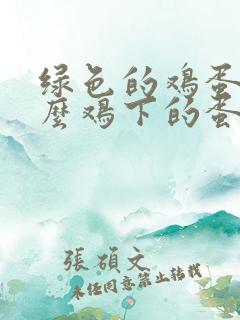 绿色的鸡蛋
麽鸡下的蛋
張碩文
未经同意禁止转载